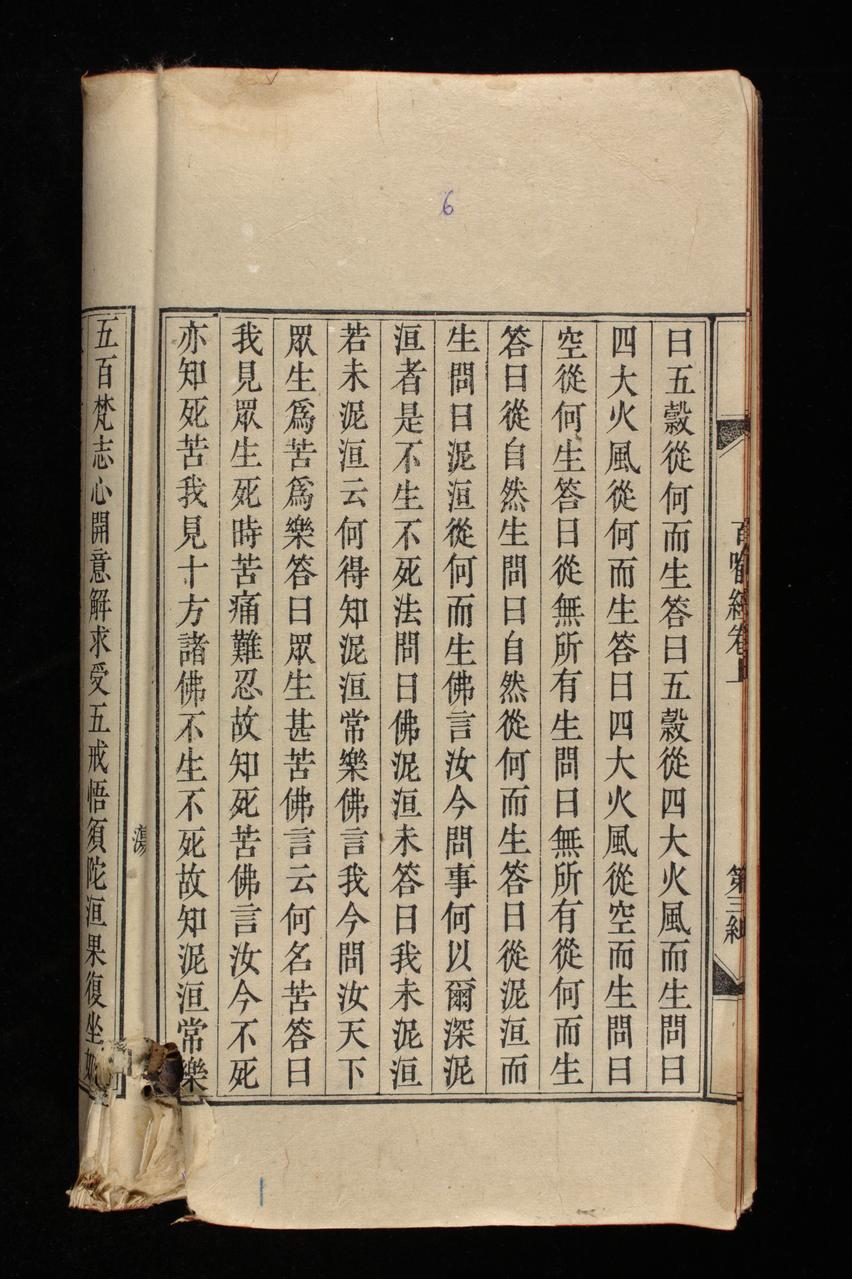 6
百喻經卷上
第三紙
曰五穀從何而生答曰五穀從四大火風而生問曰
四大火風從何而生答曰四大火風從空而生問曰
空從何生答曰從無所有生問曰無所有從何而生
答曰從自然生問曰自然從何而生答曰從泥洹而
生問曰泥洹從何而生佛言汝今問事何以爾深泥
洹者是不生不死法問曰佛泥洹未答曰我未泥洹
若未泥洹云何得知泥洹常樂佛言我今問汝天下
眾生為苦為樂答曰眾生甚苦佛言云何名苦答曰
我見眾生死時苦痛難忍故知死苦佛言汝今不死
亦知死苦我見十方諸佛不生不死故知泥洹常樂
五百梵志心開意解求受五戒悟須陀洹果復坐如